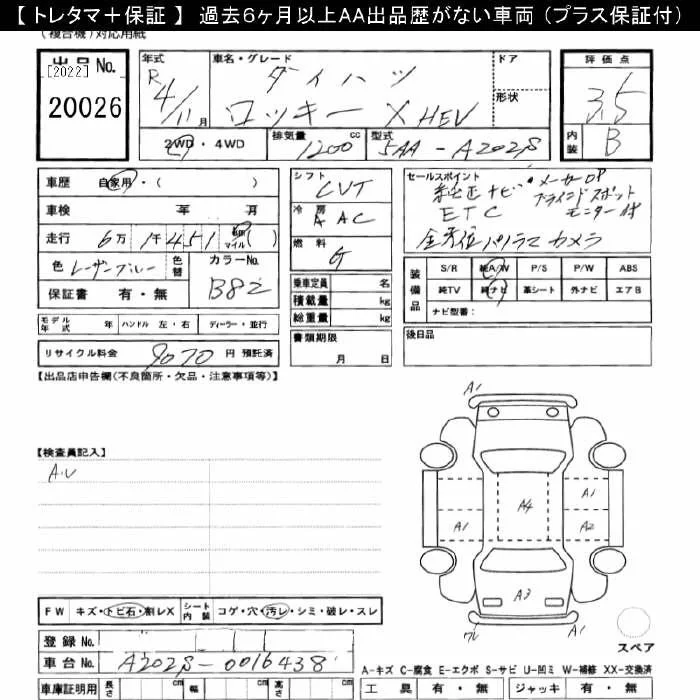 【 トレタマ＋保証 】 過去6ヶ月以上AA出品歴がない車両（プラス保証付）
(複合機)対応用紙
出品No. [2022] 20026
年式 R4/11月 車名・グレード ダイハツ ロッキー X HEV ドア 形状
評価点 3.5 内装 B
2WD・4WD 排気量 1200 cc 型式 5AA-A202S
車歴 自家用・( )
車検 年 月
走行 6万1千451 km マイル ( )
色 レーザーブルー 色替 カラーNo. B82
保証書 有・無
シフト CVT
冷房 AAC
燃料 G
乗車定員 名
積載量 kg
総重量 kg
書類期限 月 日
セールスポイント
純正ナビ・メーカーOP
ETC ブラインドスポットモニター付
全方位パノラマカメラ
装備品 S/R 純A/W P/S P/W ABS
純TV 純ナビ 革シート 外ナビ エアB
ナビ型番:
モデル年式 年 ハンドル 左・右 ディーラー・並行
後日品
リサイクル料金 9070 円 預託済
【出品店申告欄(不良箇所・欠品・注意事項等)】
【検査員記入】
A.U
A1
A1
A4
A1
A2
A3
A1
FW キズ・トビ石・割レX シート内装 コゲ・穴・汚レ・シミ・破レ・スレ
スペア
登録No.
車台No. A202S-0016438
A-キズ C-腐食 E-エクボ S-サビ U-凹ミ W-補修 XX-交換済
車庫証明用 長さ cm 幅 cm 高さ cm 工具 有・無 ジャッキ 有・無